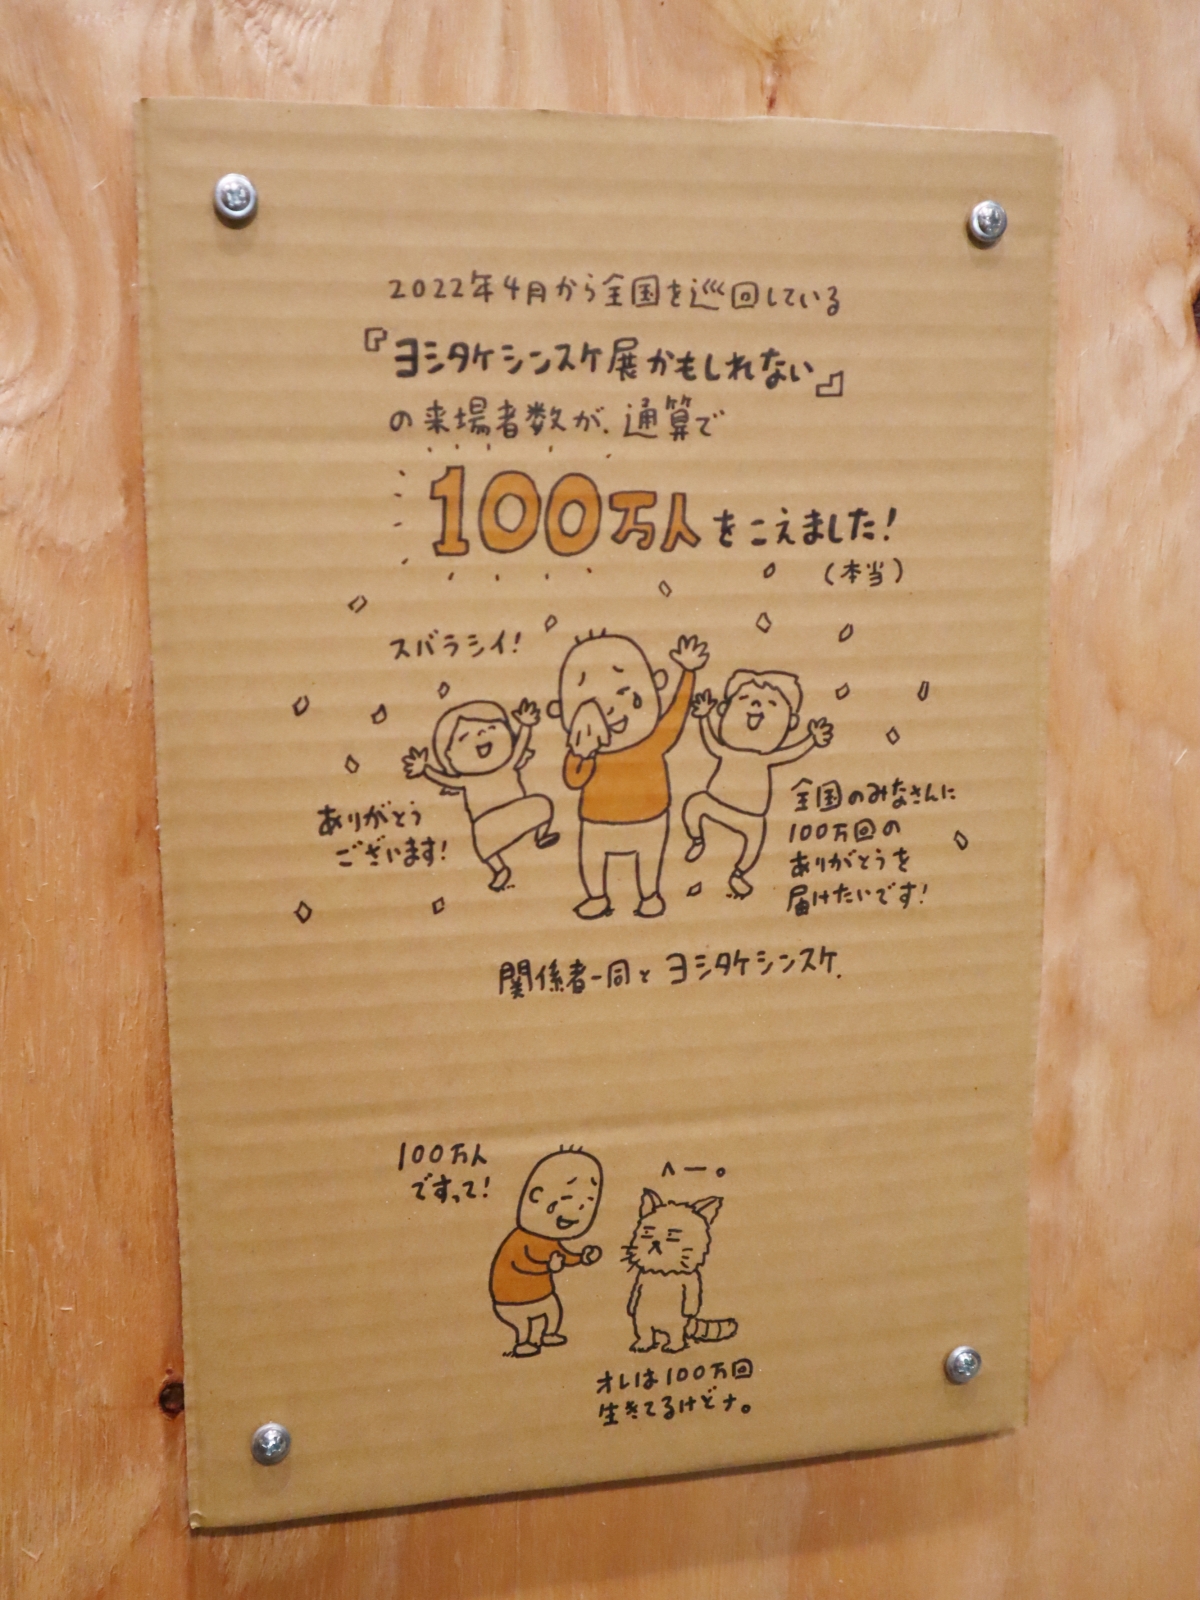 2022年4月から全国を巡回している
『ヨシタケシンスケ展かもしれない』
の来場者数が、通算で
100万人をこえました!
(本当)
スバラシイ!
ありがとう
ございます!
全国のみなさんに
100万回の
ありがとうを
届けたいです!
関係者一同とヨシタケシンスケ.
100万人
ですって!
へー。
オレは100万回
生きてるけどナ。